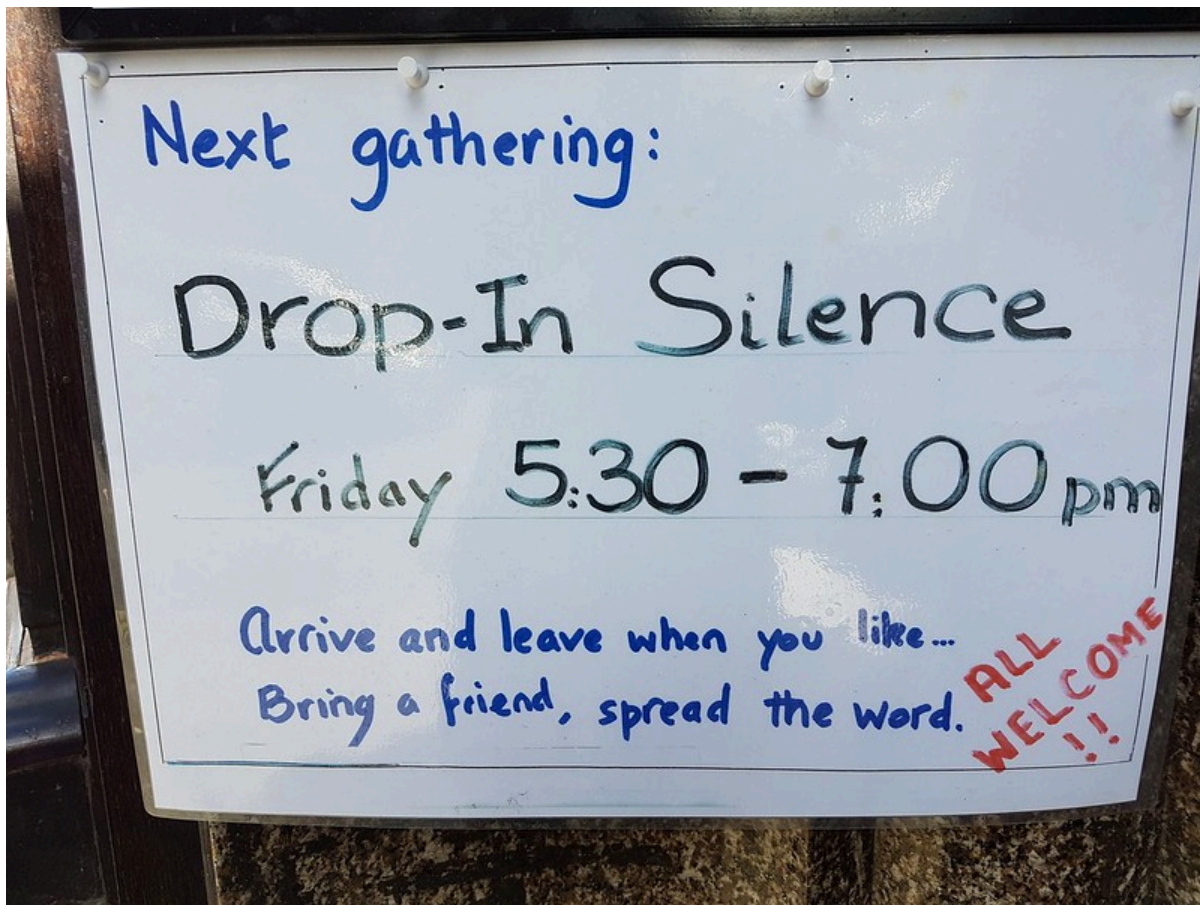 Next gathering:
Drop-In Silence
Friday 5:30 - 7:00 pm
Arrive and leave when you like...
Bring a friend, spread the word.
ALL
WELCOME
!!